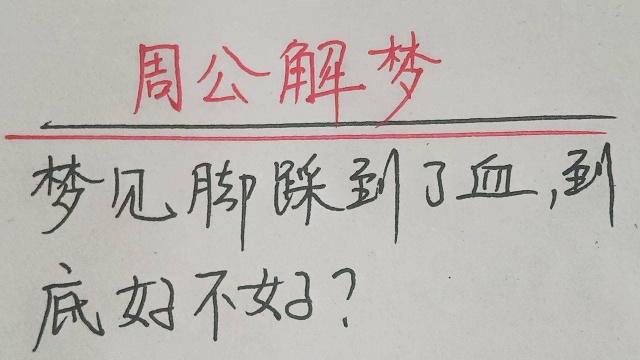 周公解梦
梦见脚踩到了血,到
底好不好?